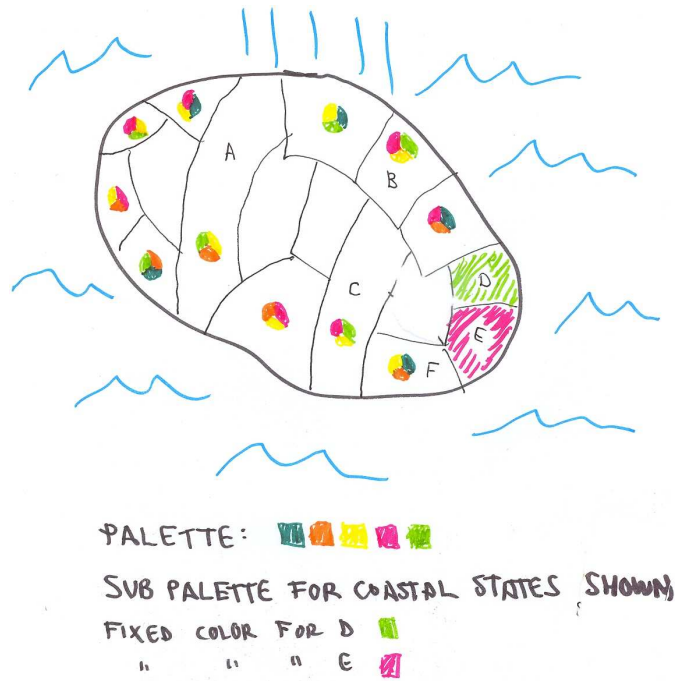 A
B
C
D
E
F
PALETTE:
SUB PALETTE FOR COASTAL STATES SHOWN,
FIXED COLOR FOR D
" " " E